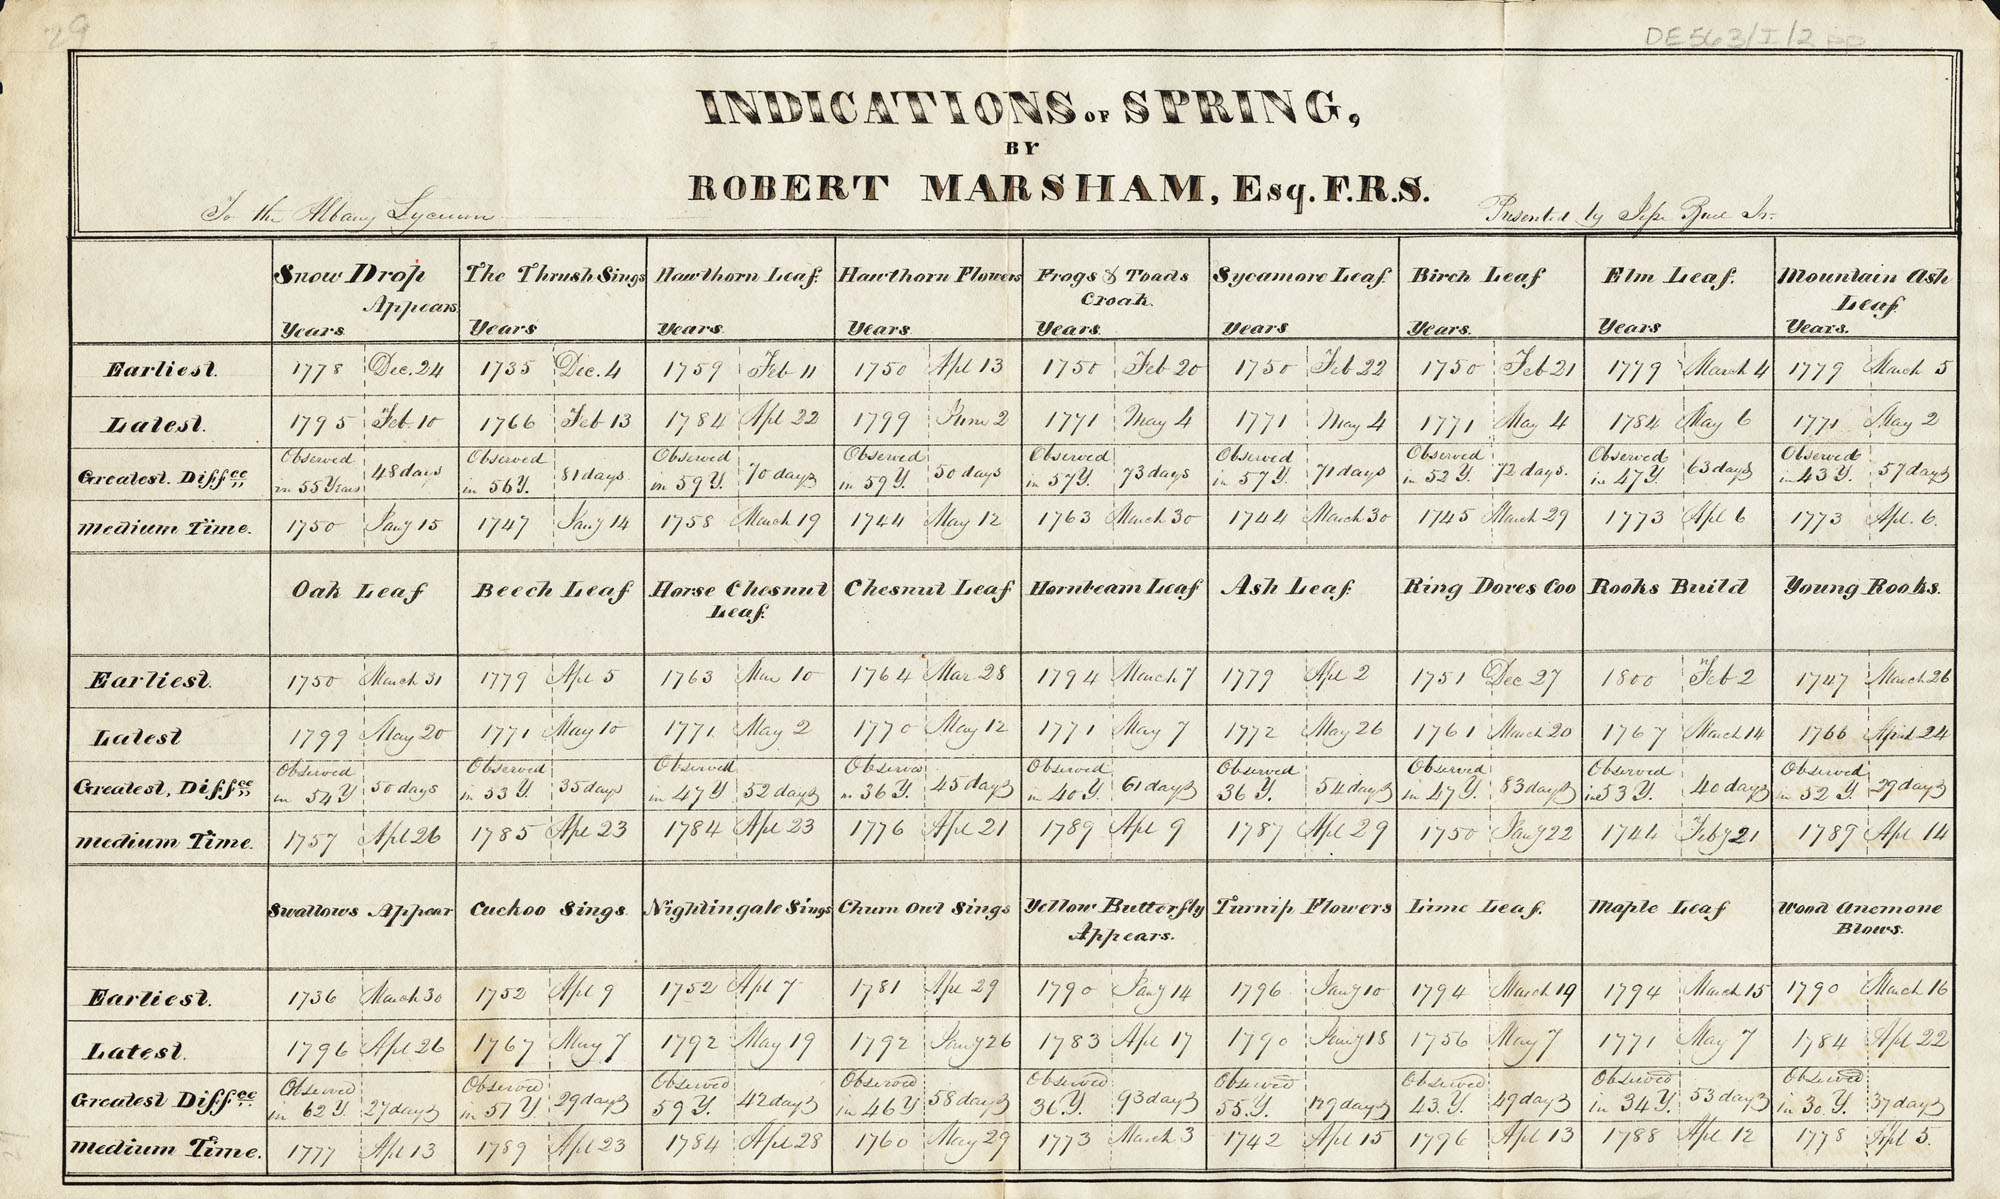 29
DE563/I/2
INDICATIONS OF SPRING,
BY
ROBERT MARSHAM, Esq. F.R.S.
To the Albany Lyceum
Presented by
Snow Drop Appears Years | The Thrush Sings Years | Hawthorn Leaf. Years. | Hawthorn Flowers Years | Frogs & Toads Croak. Years. | Sycamore Leaf. Years | Birch Leaf Years. | Elm Leaf. Years | Mountain Ash Leaf Years.
Earliest. 1778 Dec. 24 | 1735 Dec. 4 | 1759 Feb 11 | 1750 Apl 13 | 1750 Feb 20 | 1750 Feb 22 | 1750 Feb 21 | 1779 March 4 | 1779 March 5
Latest. 1795 Feb. 10 | 1766 Feb 13 | 1784 Apl 22 | 1799 June 2 | 1771 May 4 | 1771 May 4 | 1771 May 4 | 1784 May 6 | 1771 May 2
Greatest Diffce Observed in 55 Years 48 days | Observed in 56 Y. 81 days | Observed in 59 Y. 70 days | Observed in 59 Y. 50 days | Observed in 57 Y. 73 days | Observed in 57 Y. 71 days | Observed in 52 Y. 72 days. | Observed in 47 Y. 63 days | Observed in 43 Y. 57 days
Medium Time. 1750 Jany 15 | 1747 Jany 14 | 1758 March 19 | 1744 May 12 | 1763 March 30 | 1744 March 30 | 1745 March 29 | 1773 Apl 6 | 1773 Apl. 6.
Oak Leaf | Beech Leaf | Horse Chesnut Leaf. | Chesnut Leaf | Hornbeam Leaf | Ash Leaf. | Ring Doves Coo | Rooks Build | Young Rooks.
Earliest. 1750 March 31 | 1779 Apl 5 | 1763 Mar 10 | 1764 Mar 28 | 1794 March 7 | 1779 Apl 2 | 1751 Dec 27 | 1800 Feb 2 | 1747 March 26
Latest 1799 May 20 | 1771 May 10 | 1771 May 2 | 1770 May 12 | 1771 May 7 | 1772 May 26 | 1761 March 20 | 1767 March 14 | 1766 April 24
Greatest, Diffce Observed in 54 Y 50 days | Observed in 53 Y. 35 days | Observed in 47 Y 52 days | Observed 36 Y. 45 days | Observed in 40 Y. 61 days | Observed 36 Y. 54 days | Observed in 47 Y. 83 days | Observed in 53 Y. 40 days | Observed in 52 Y. 29 days
Medium Time. 1757 Apl 26 | 1785 Apl 23 | 1784 Apl 23 | 1776 Apl 21 | 1789 Apl 9 | 1787 Apl 29 | 1750 Jany 22 | 1744 Feby 21 | 1789 Apl 14
Swallows Appear | Cuckoo Sings | Nightingale Sings | Churn Owl Sings | Yellow Butterfly Appears. | Turnip Flowers | Lime Leaf. | Maple Leaf | Wood Anemone Blows.
Earliest. 1736 March 30 | 1752 Apl 9 | 1752 Apl 7 | 1781 Apl 29 | 1790 Jany 14 | 1796 Jany 10 | 1794 March 19 | 1794 March 15 | 1790 March 16
Latest. 1796 Apl 26 | 1767 May 7 | 1792 May 19 | 1792 Jany 26 | 1783 Apl 17 | 1790 Jany 18 | 1756 May 7 | 1771 May 7 | 1784 Apl 22
Greatest Diffce. Observed in 62 Y 27 days | Observed in 51 Y. 29 days | Observed 59 Y. 42 days | Observed in 46 Y 58 days | Observed 36 Y. 93 days | Observed 55 Y. 129 days | Observed 43. Y. 49 days | Observed in 34 Y. 53 days | Observed in 30. Y. 37 days
Medium Time. 1777 Apl 13 | 1789 Apl 23 | 1784 Apl 28 | 1760 May 29 | 1773 March 3 | 1742 Apl 15 | 1796 Apl 13 | 1788 Apl 12 | 1778 Apl 5.